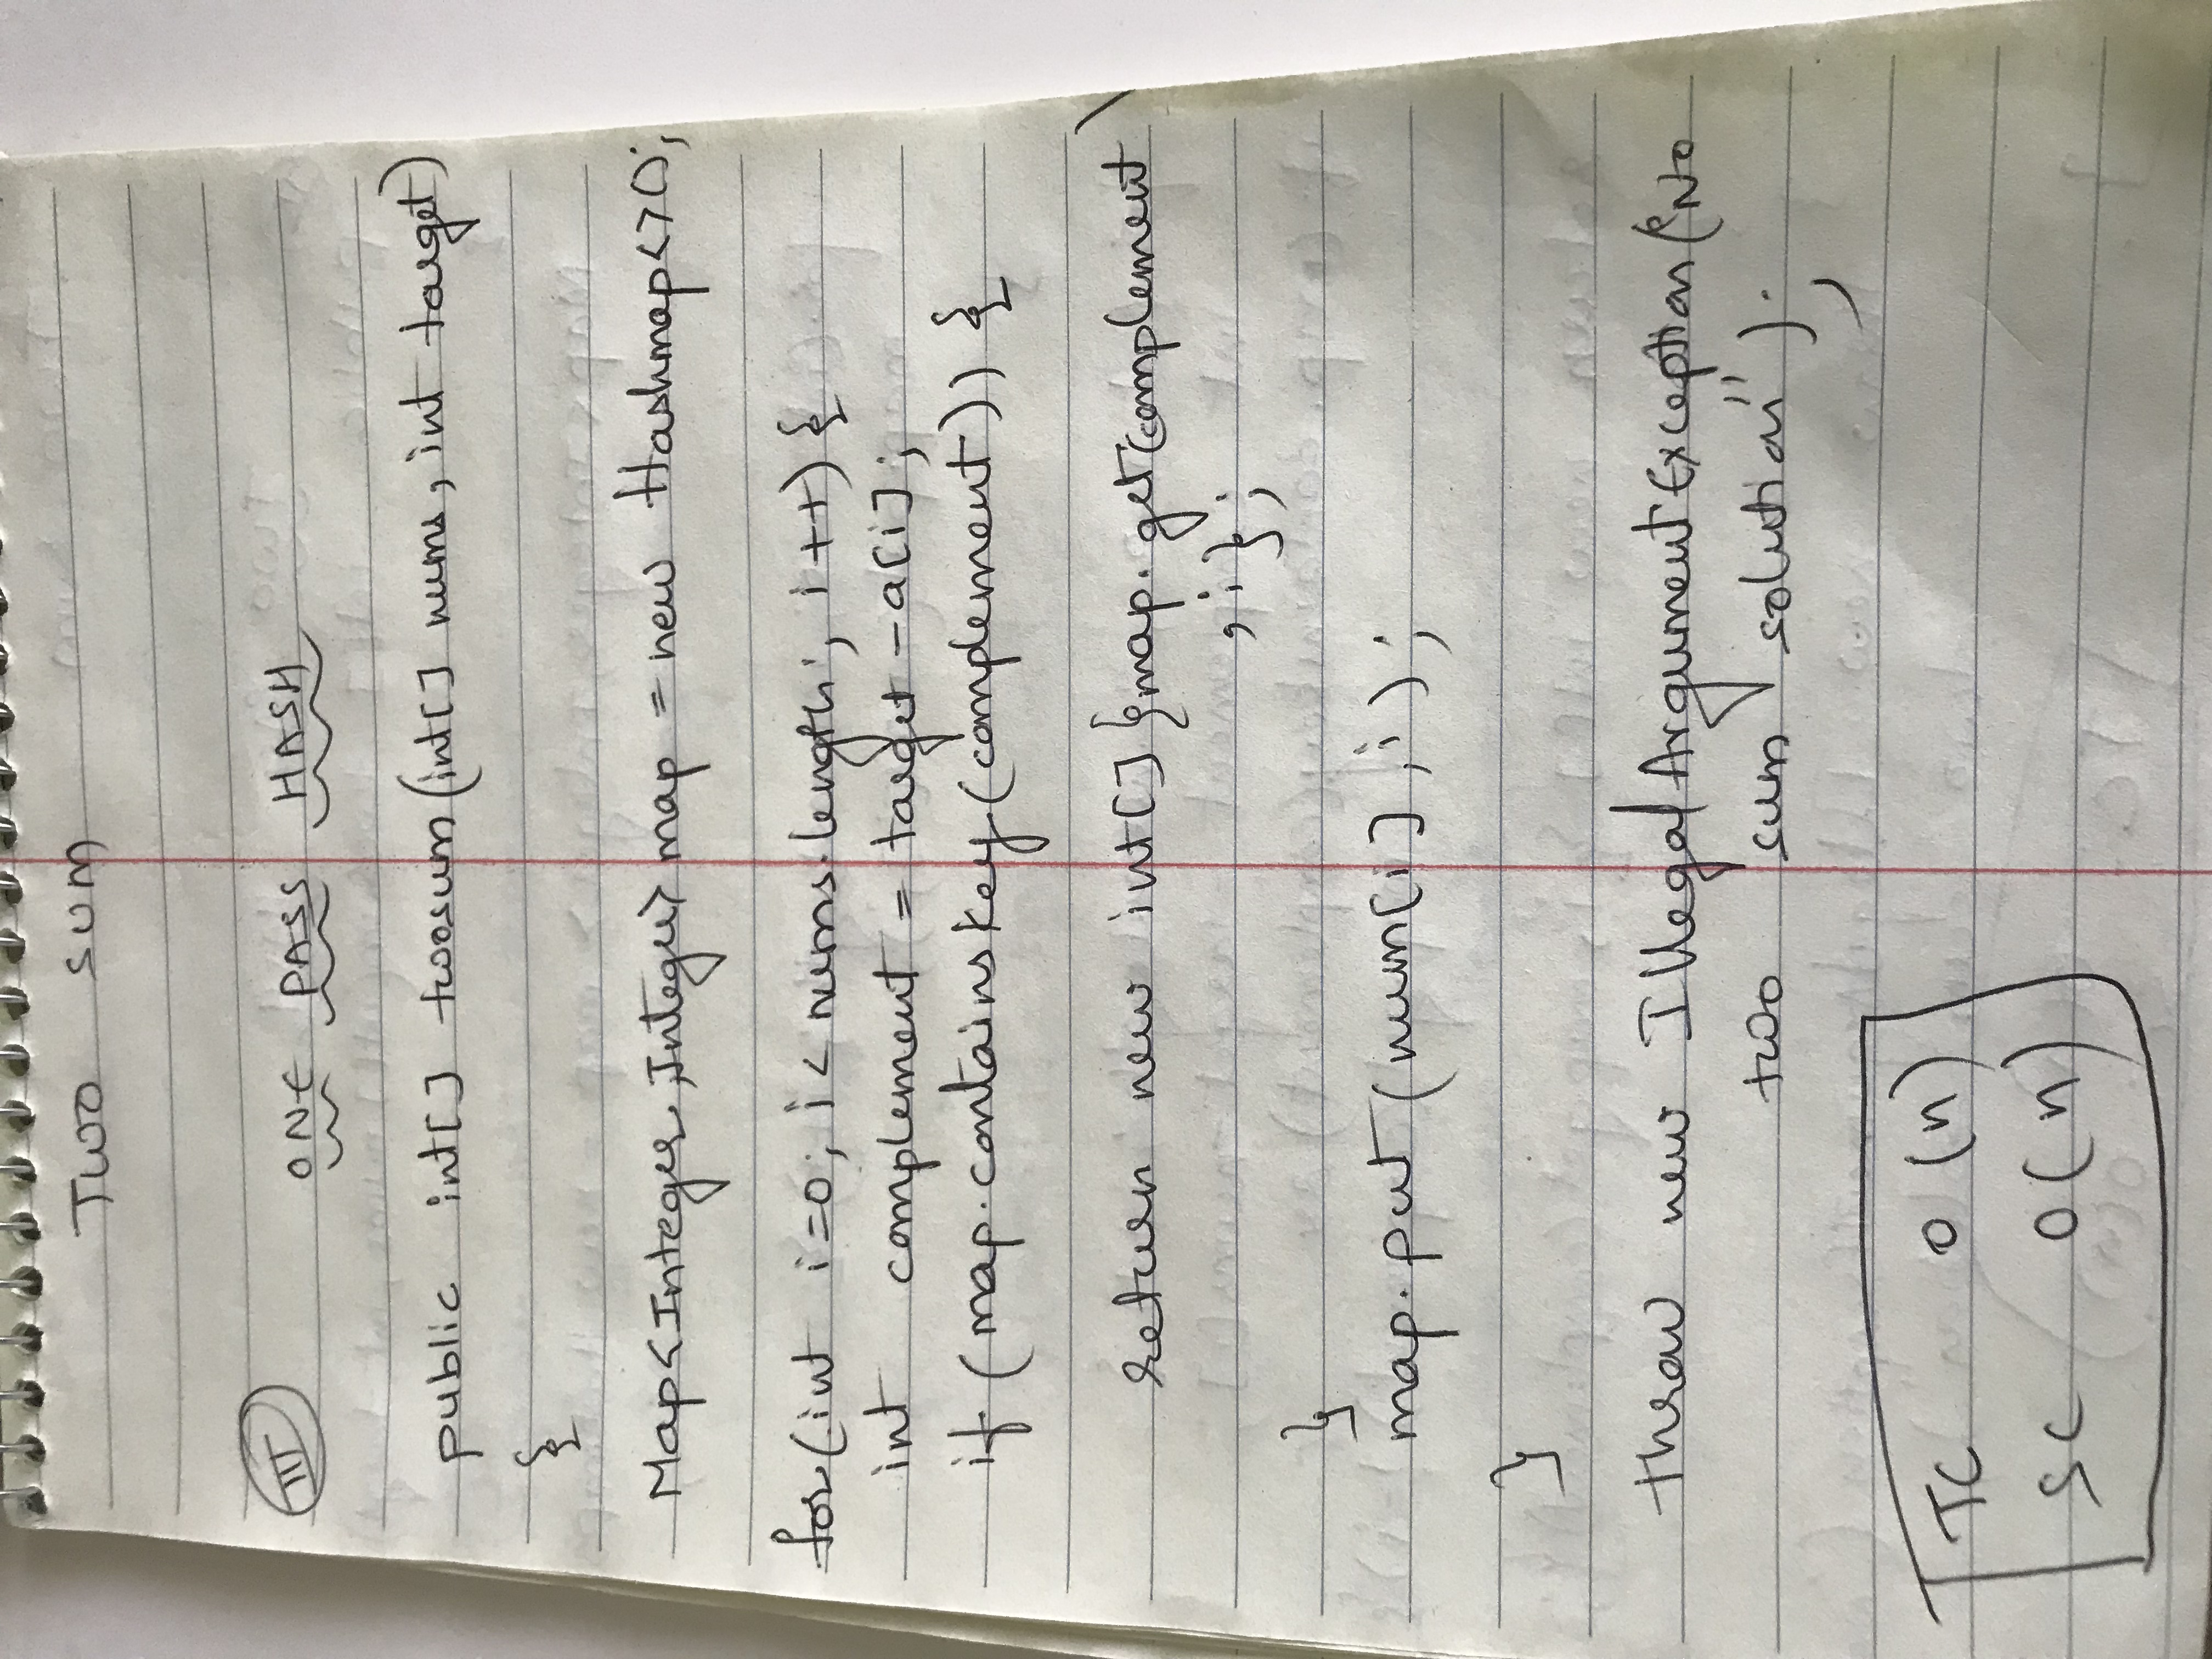 TWO SUM
III ONE PASS HASH
public int[] twosum(int[] nums, int target)
{
Map<Integer,Integer> map = new Hashmap<>();
for(int i=0; i < nums.length; i++) {
int complement = target - a[i];
if (map.containskey(complement)) {
return new int[] {map.get(complement)
, i };
}
map.put (num[i], i);
}
throw new IllegalArgumentException("No
two sum solution");
TC O(n)
SC O(n)